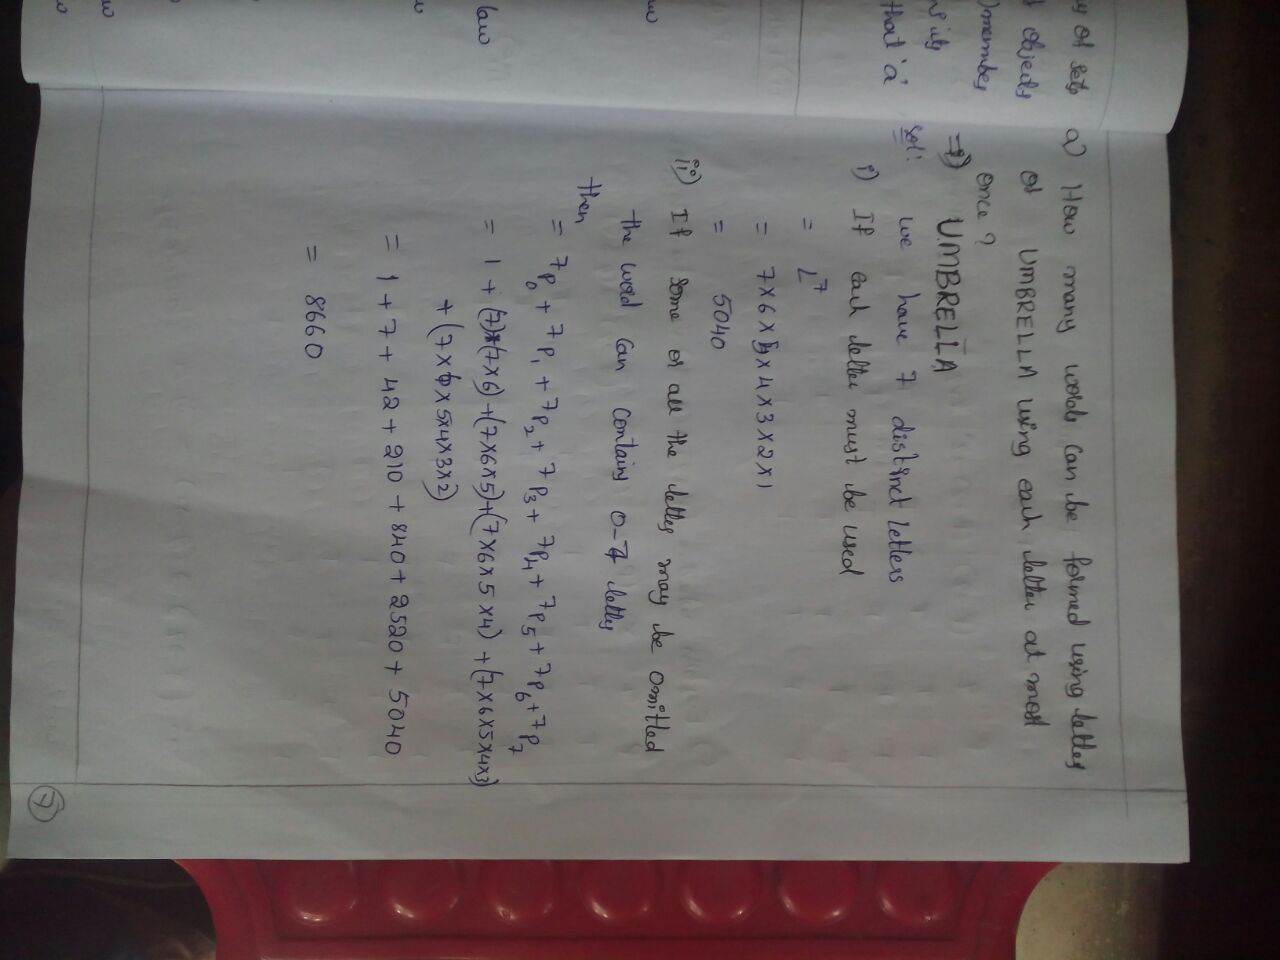 y of sets
d objects
) member
that 'a'
law
a) How many words can be formed using letters
of UMBRELLA using each letter at most
once?
UMBRELLA
sol: we have 7 distinct letters
i) If each letter must be used
= L7
= 7 x 6 x 5 x 4 x 3 x 2 x 1
= 5040
ii) If some or all the letters may be omitted
the word can contains 0-7 letters
then
= 7P0 + 7P1 + 7P2 + 7P3 + 7P4 + 7P5 + 7P6 + 7P7
= 1 + (7)+(7x6) + (7x6x5)+(7x6x5x4) + (7x6x5x4x3)
+ (7x6x5x4x3x2)
= 1 + 7 + 42 + 210 + 840 + 2520 + 5040
= 8660
7